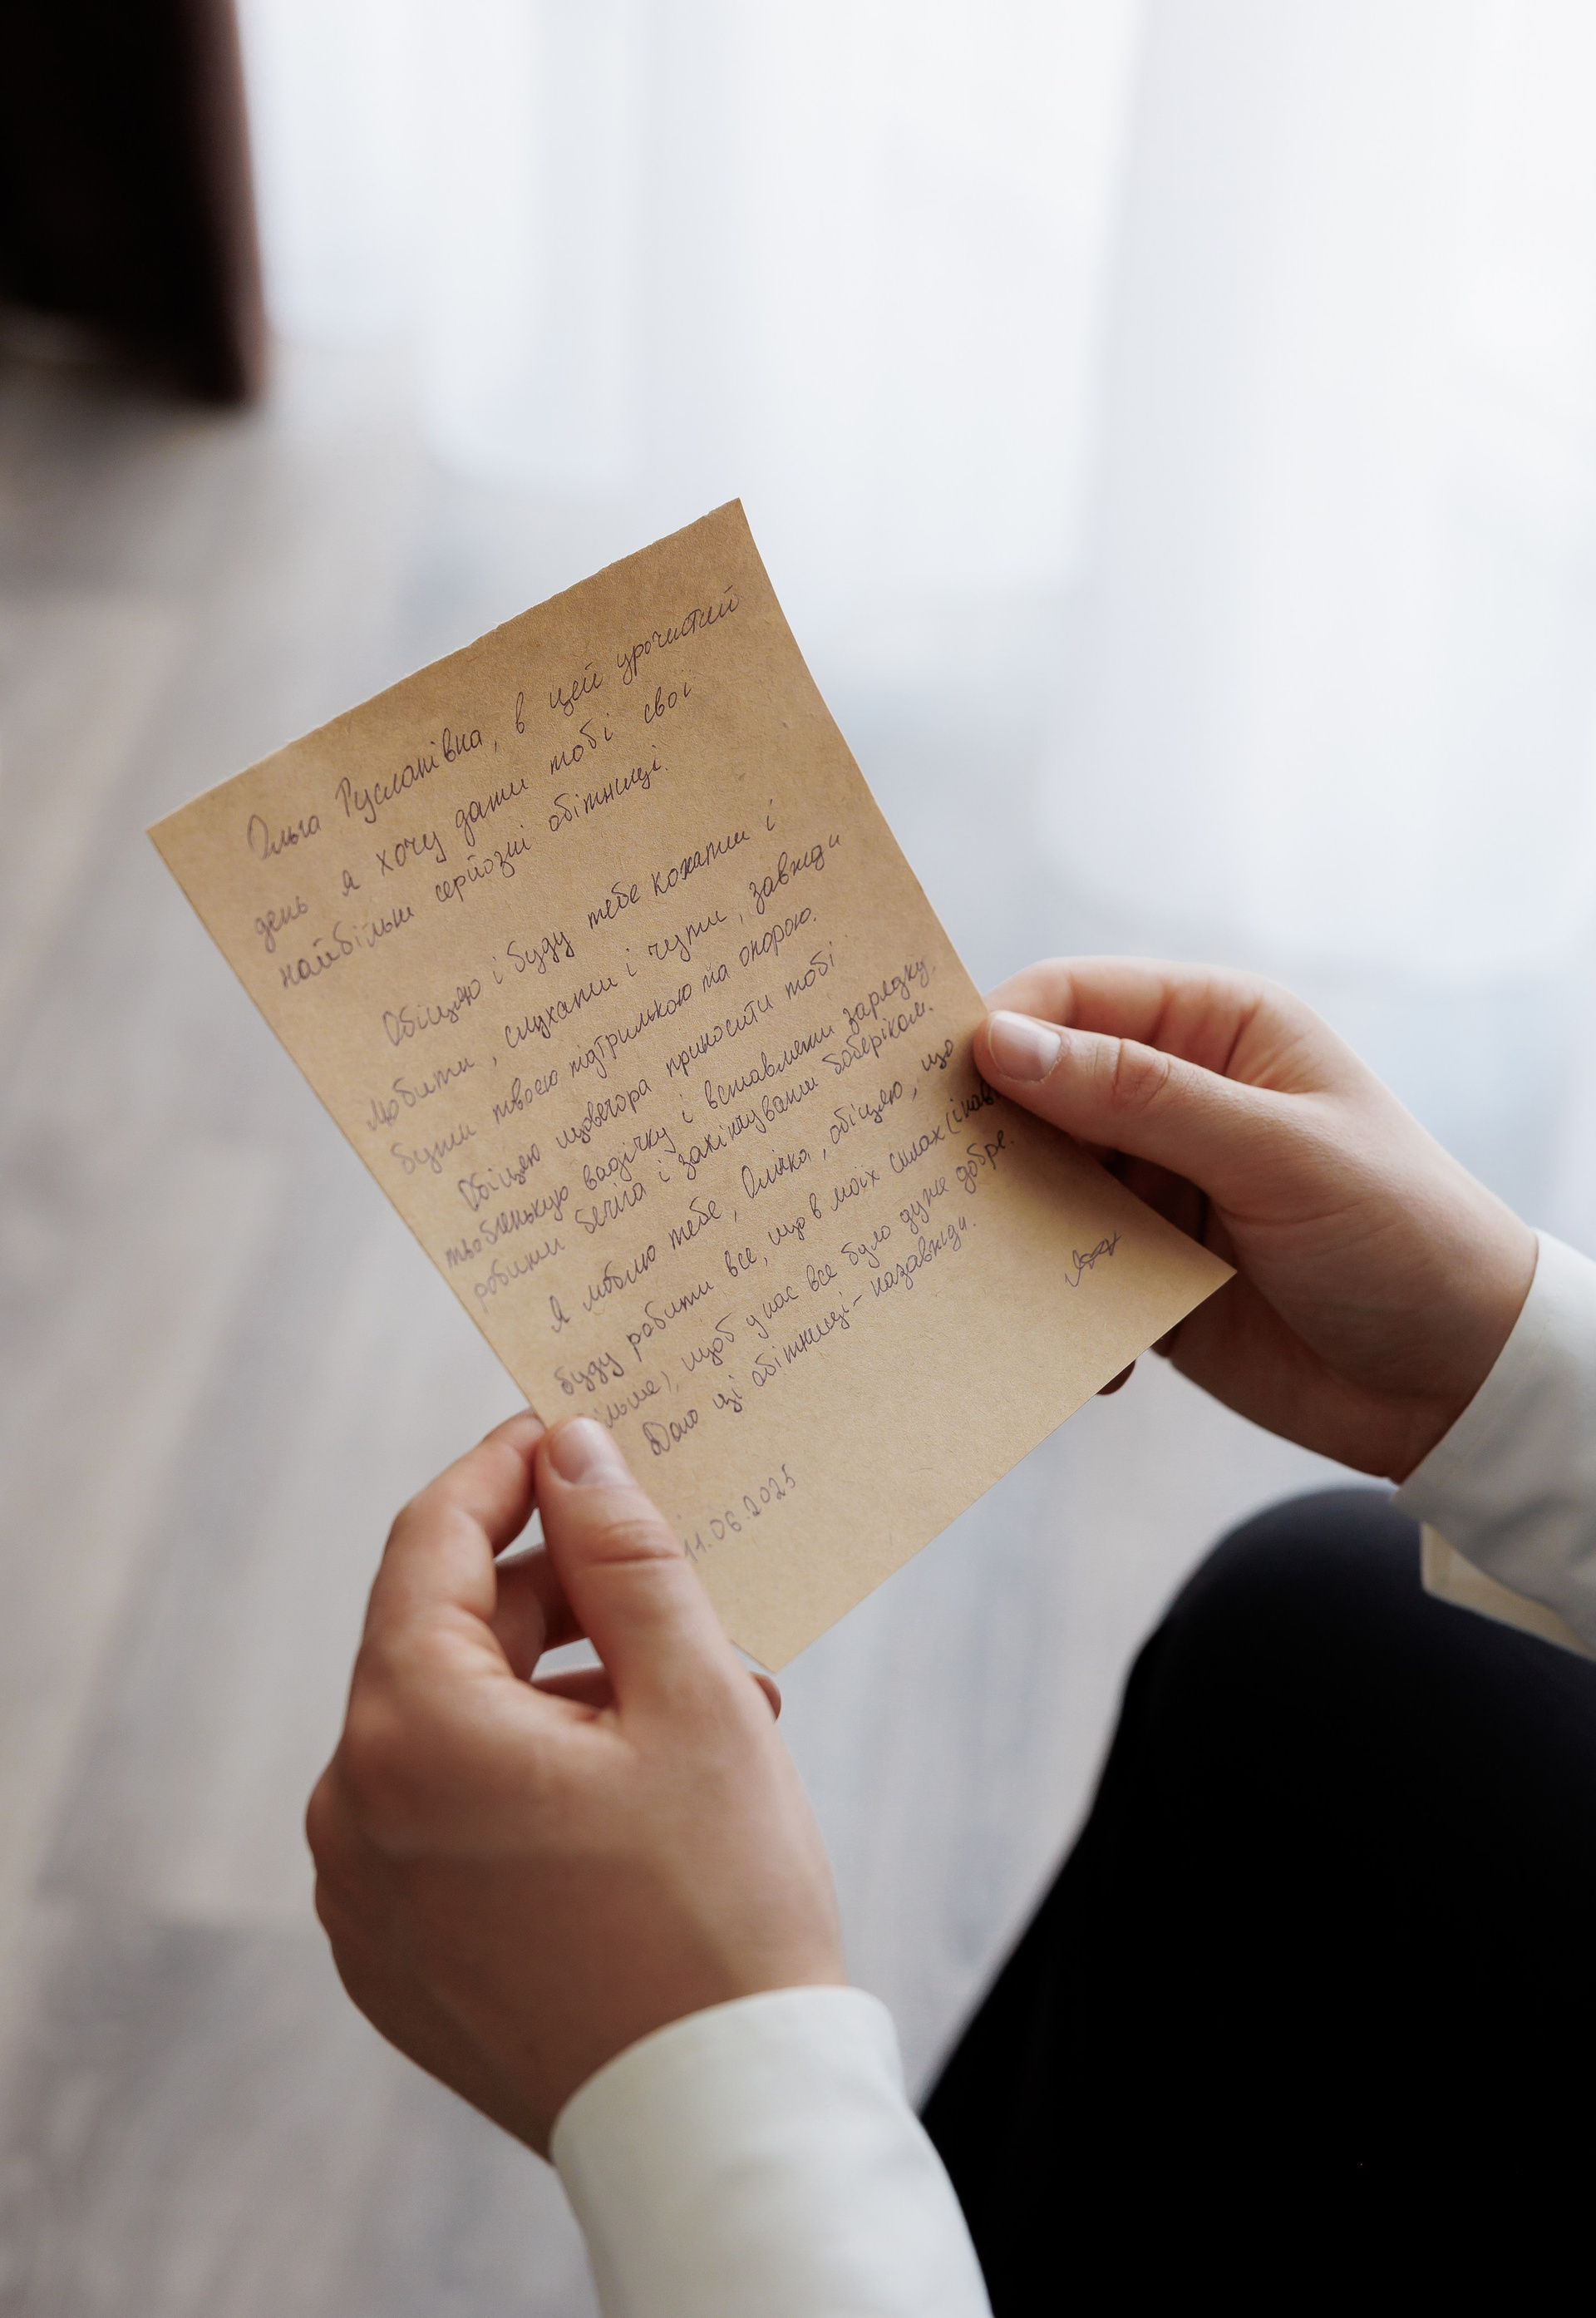 Ольга Русланівна, в цей урочистий
день я хочу дати тобі свої
найбільш серйозні обітниці.
Обіцяю і буду тебе кохати і
любити, слухати і чути, завжди
бути твоєю підтримкою та опорою.
Обіцяю щовечора приносити тобі
тьопленькую вадічку і вставляти зарядку,
робити бечіга і закінчувати боберіком.
Я люблю тебе, Олічка, обіцяю, що
буду робити все, що в моїх силах (і нав
ільше), щоб у нас все було дуже добре.
Даю ці обітниці - назавжди.
11.06.2025